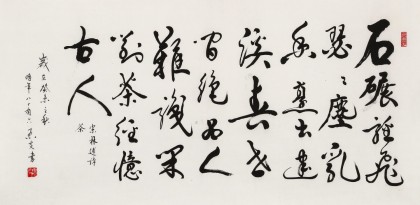 石碾輕飛
瑟々塵乳
香烹出建
溪春世
間絕品人
難識閑
對茶經憶
古人
宋林逋詩
茶
歲在癸未之秋
時年八十有六
書